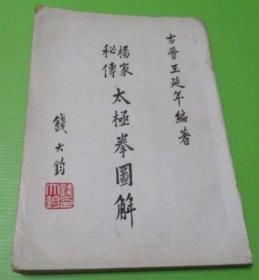 古晉王延年編著
楊家
秘傳
太極拳圖解
錢大鈞